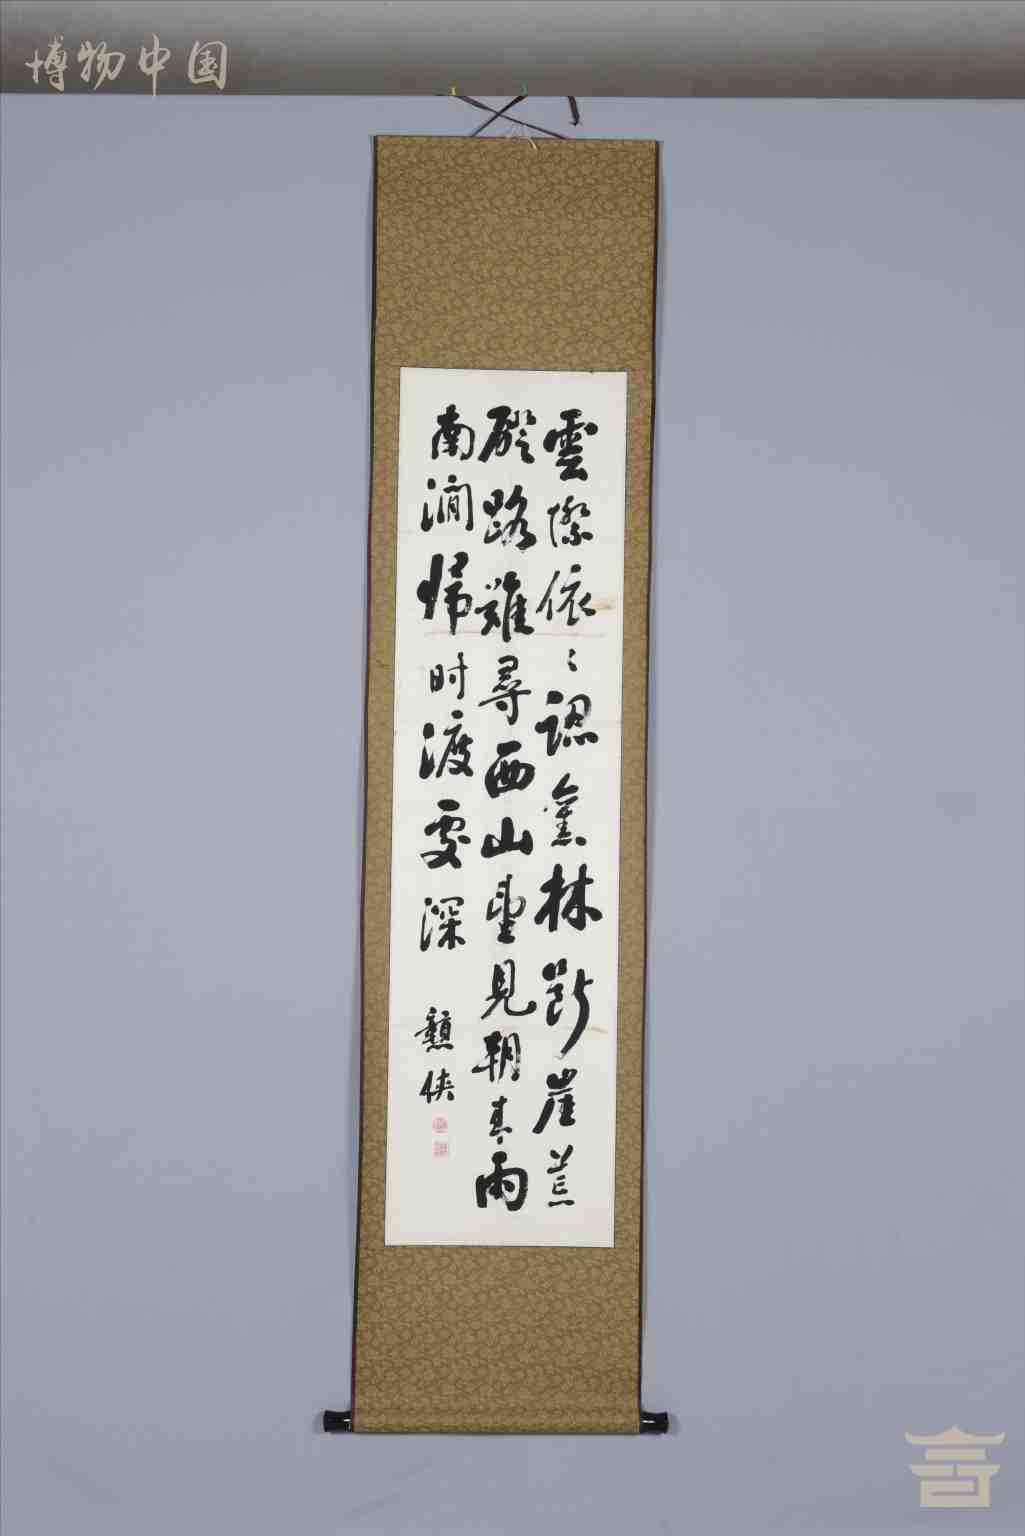 博物中国
雲際依〻認舊林斷崖荒
磴路難尋西山望見朝来雨
南澗帰时渡處深
侠